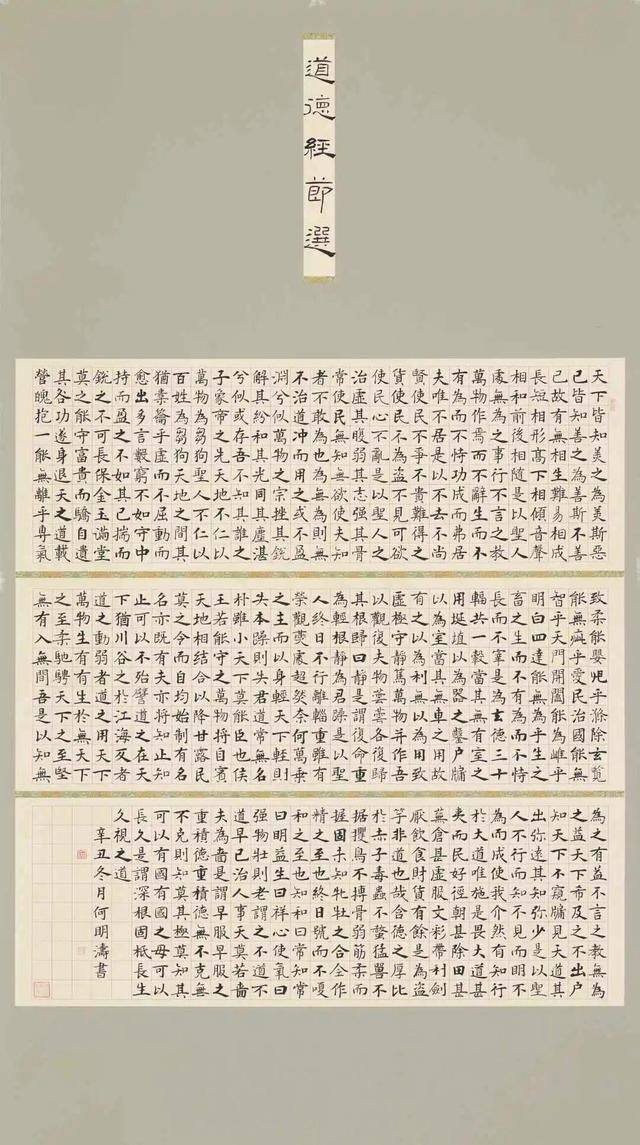 道德經節選
天下皆知美之為美斯惡
已皆知善之為善斯不善
已故有無相生難易相成
長短相形高下相傾音聲
相和前後相隨是以聖人
處無為之事行不言之教
萬物作焉而不辭生而不
有為而不恃功成而弗居
夫唯不居是以不去不尚
賢使民不爭不貴難得之
貨使民不為盜不見可欲
使民心不亂是以聖人之
治虛其腹弱其志强其骨
常使民無知無欲使夫知
者不敢為也為無為則無
不治道沖而用之或不盈
淵兮似萬物之宗挫其銳
解其紛和其光同其塵湛
兮似或存吾不知其誰之
子象帝之先天地不仁以
萬物為芻狗聖人不仁以
百姓為芻狗天地之間其
猶橐籥乎虛而不屈動而
愈出多言數窮不如守中
持而盈之不如其已揣而
銳之不可長保金玉滿堂
莫之能守富貴而驕自遺
其各功遂身退天之道載
營魄抱一能無離乎專氣
致柔能嬰兒乎滌除玄覽
能無疵乎愛民治國能無
智乎天門開闔能為雌乎
明白四達能無為乎生之
畜之生而不有為而不恃
長而不宰是為玄德三十
輻共一轂當其無有室之
用埏埴以為器之鑿户牖
以為室當其無車之用故
有之以為利無以為用致
虛極守静篤萬物并作吾
以觀復夫物芸芸各復歸
其根歸根曰静是謂復命重
為輕根静為君躁是以聖
人終日不行離輜重雖有
榮觀燕處超然奈何萬乘
之主而以身輕天下輕則
失本躁則失君道常無名
朴雖小天下莫能臣也侯
王若能守之萬物將自賓
天地相結合以降甘露民
莫之令而自均始制有名
名亦既有夫亦將知止知
止可以不殆譬道之在天
下猶川谷之於江海反者
道之動弱者道之用天下
萬物生有有生於無天下
之至柔馳騁天下之至堅
無有入無間吾是以知無
為之有益不言之教無為
之益天下希及之不出户
知天下不窺牖見天道其
出弥遠其知弥少是以聖
人不行而知不見而明不
為而成使我介然有知行
於大道唯施是畏大道甚
夷而民好徑朝甚除田甚
蕪倉甚虛服文彩帶利劍
厭飲食財貨有餘是為盜
竽非道也哉含德之厚比
於赤子毒蟲不螫猛獸不
據攫鳥不搏骨弱筋柔而
握固未知牝牡之合全作
精之至也終日號而不嗄
和之至也知和曰常知常
曰明益生曰祥心使氣曰
强物壯則老謂之不道不
道早已治人事天莫若嗇
夫為嗇是謂早服早服之
重積德重積德無不克無
不克則知莫其極莫知其
可以有國有國之母可以
長久是謂深根固柢長生
久視之道
辛丑冬月何明濤書